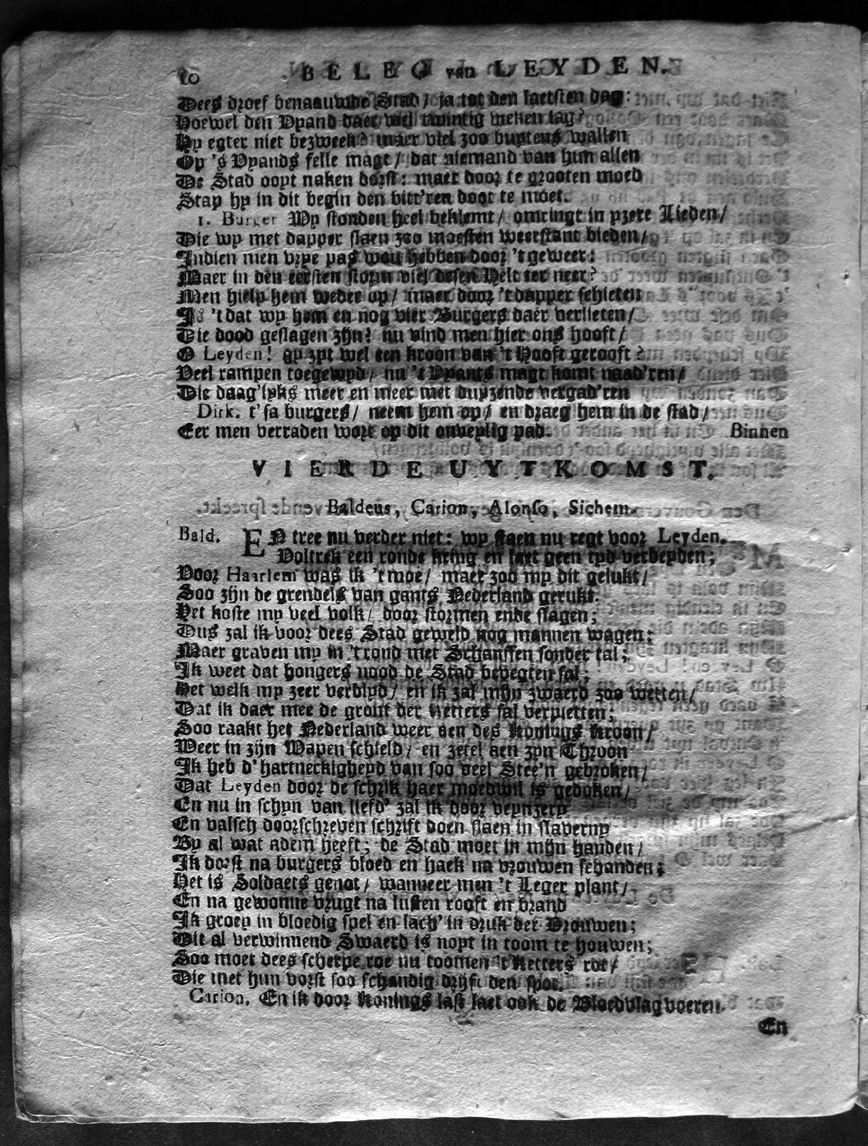 10 BELEG van LEYDEN.
Dees droef benaauwde Stad/ ja tot den laetsten dag:
Hoewel den Vyand daer wel twintig weken lag?
Hy egter niet bezweek? maer viel zoo buytens wallen
Op 's Vyands felle magt/ dat niemand van hun allen
De Stad oopt naken dorst: maer door te grooten moed
Stap hy in dit begin den bitt'ren doot te moet.
1. Burger Wy stonden heel beklemt/ omringt in yzere Lieden/
Die wy met dapper slaen zoo moesten weerstant bieden/
Indien men vrye pas wou hebben door 't geweer:
Maer in den eersten storm viel desen Helt ter neer?
Men hielp hem weder op/ maer door 't dapper schieten
Is 't dat wy hem en nog vier Burgers daer verlieten/
Die dood geslagen zijn? nu vind men hier ons hooft/
O Leyden! gy zyt wel een kroon van 't Hooft gerooft?
Veel rampen toegewyd/ nu 't Vyants magt komt naad'ren/
Die daag'lyks meer en meer met duyzende vergad'ren
Dirk. t'sa burgers/ neem hem op/ en draeg hem in de stad/
Eer men verraden wort op dit onveylig pad. Binnen
VIERDE UYTKOMST.
Baldeus, Carion, Alonso, Sichem.
Bald. EN tree nu verder niet: wy staen nu regt voor Leyden.
Voltrek een ronde kring en laet geen tyd verbeyden;
Voor Haarlem was ik 't moe/ maer zoo my dit gelukt/
Soo zijn de grendels van gants Nederland gerukt.
Het koste my veel volk/ door stormen ende slagen;
Dus zal ik voor dees Stad geweld nog mannen wagen:
Maer graven my in 't rond met Schanssen sonder tal;
Ik weet dat hongers nood de Stad bevegten sal;
Het welk my zeer verblyd/ en ik zal mijn zwaerd zoo wetten/
Dat ik daer mee de gront der Ketters sal verpletten;
Soo raakt het Nederland weer aen des Konings Kroon/
Weer in zijn Wapen schield/ en zetel aen zyn Throon
Ik heb d'hartneckigheyd van soo veel Stee'n gebroken/
Dat Leyden door de schrik haer moedwil is gedoken/
En nu in schyn van liefd' zal ik door veynzery
En valsch doorschreven schrift doen slaen in slaverny
By al wat adem heeft; de Stad moet in mijn handen/
Ik dorst na burgers bloed en haek na vrouwen schanden;
Het is Soldaets genot/ wanneer men 't Leger plant/
En na gewonne vrugt na lusten rooft en brand
Ik groey in bloedig spel en lach' in druk der Vrouwen;
Dit al verwinnend Swaerd is noyt in toom te houwen;
Soo moet dees scherpe roe nu toomen 't Ketters rot/
Die met hun vorst soo schandig drijft den spot.
Carion. En ik door Konings last laet ook de Bloedvlag voeren.
En